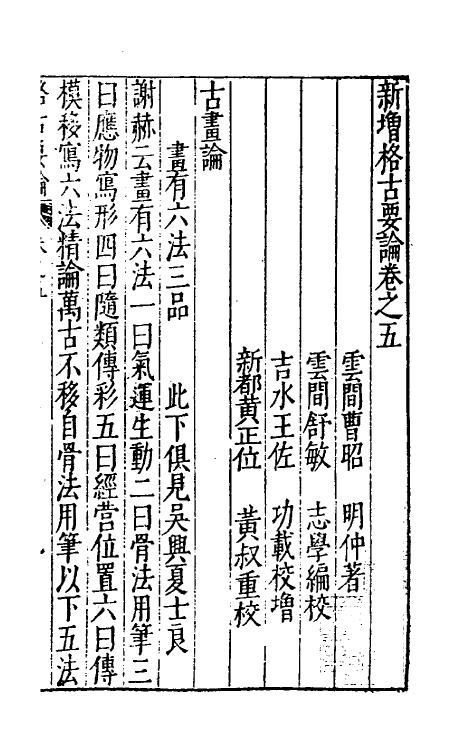 新增格古要論卷之五
雲間曹昭 明仲著
雲間舒敏 志學編校
吉水王佐 功載校增
新都黃正位 黃叔重校
古畫論
畫有六法三品 此下俱見吳興夏士良
謝赫云畫有六法一曰氣運生動二曰骨法用筆三
曰應物寫形四曰隨類傳彩五曰經営位置六曰傳
模移寫六法精論萬古不移自骨法用筆以下五法
格古要論